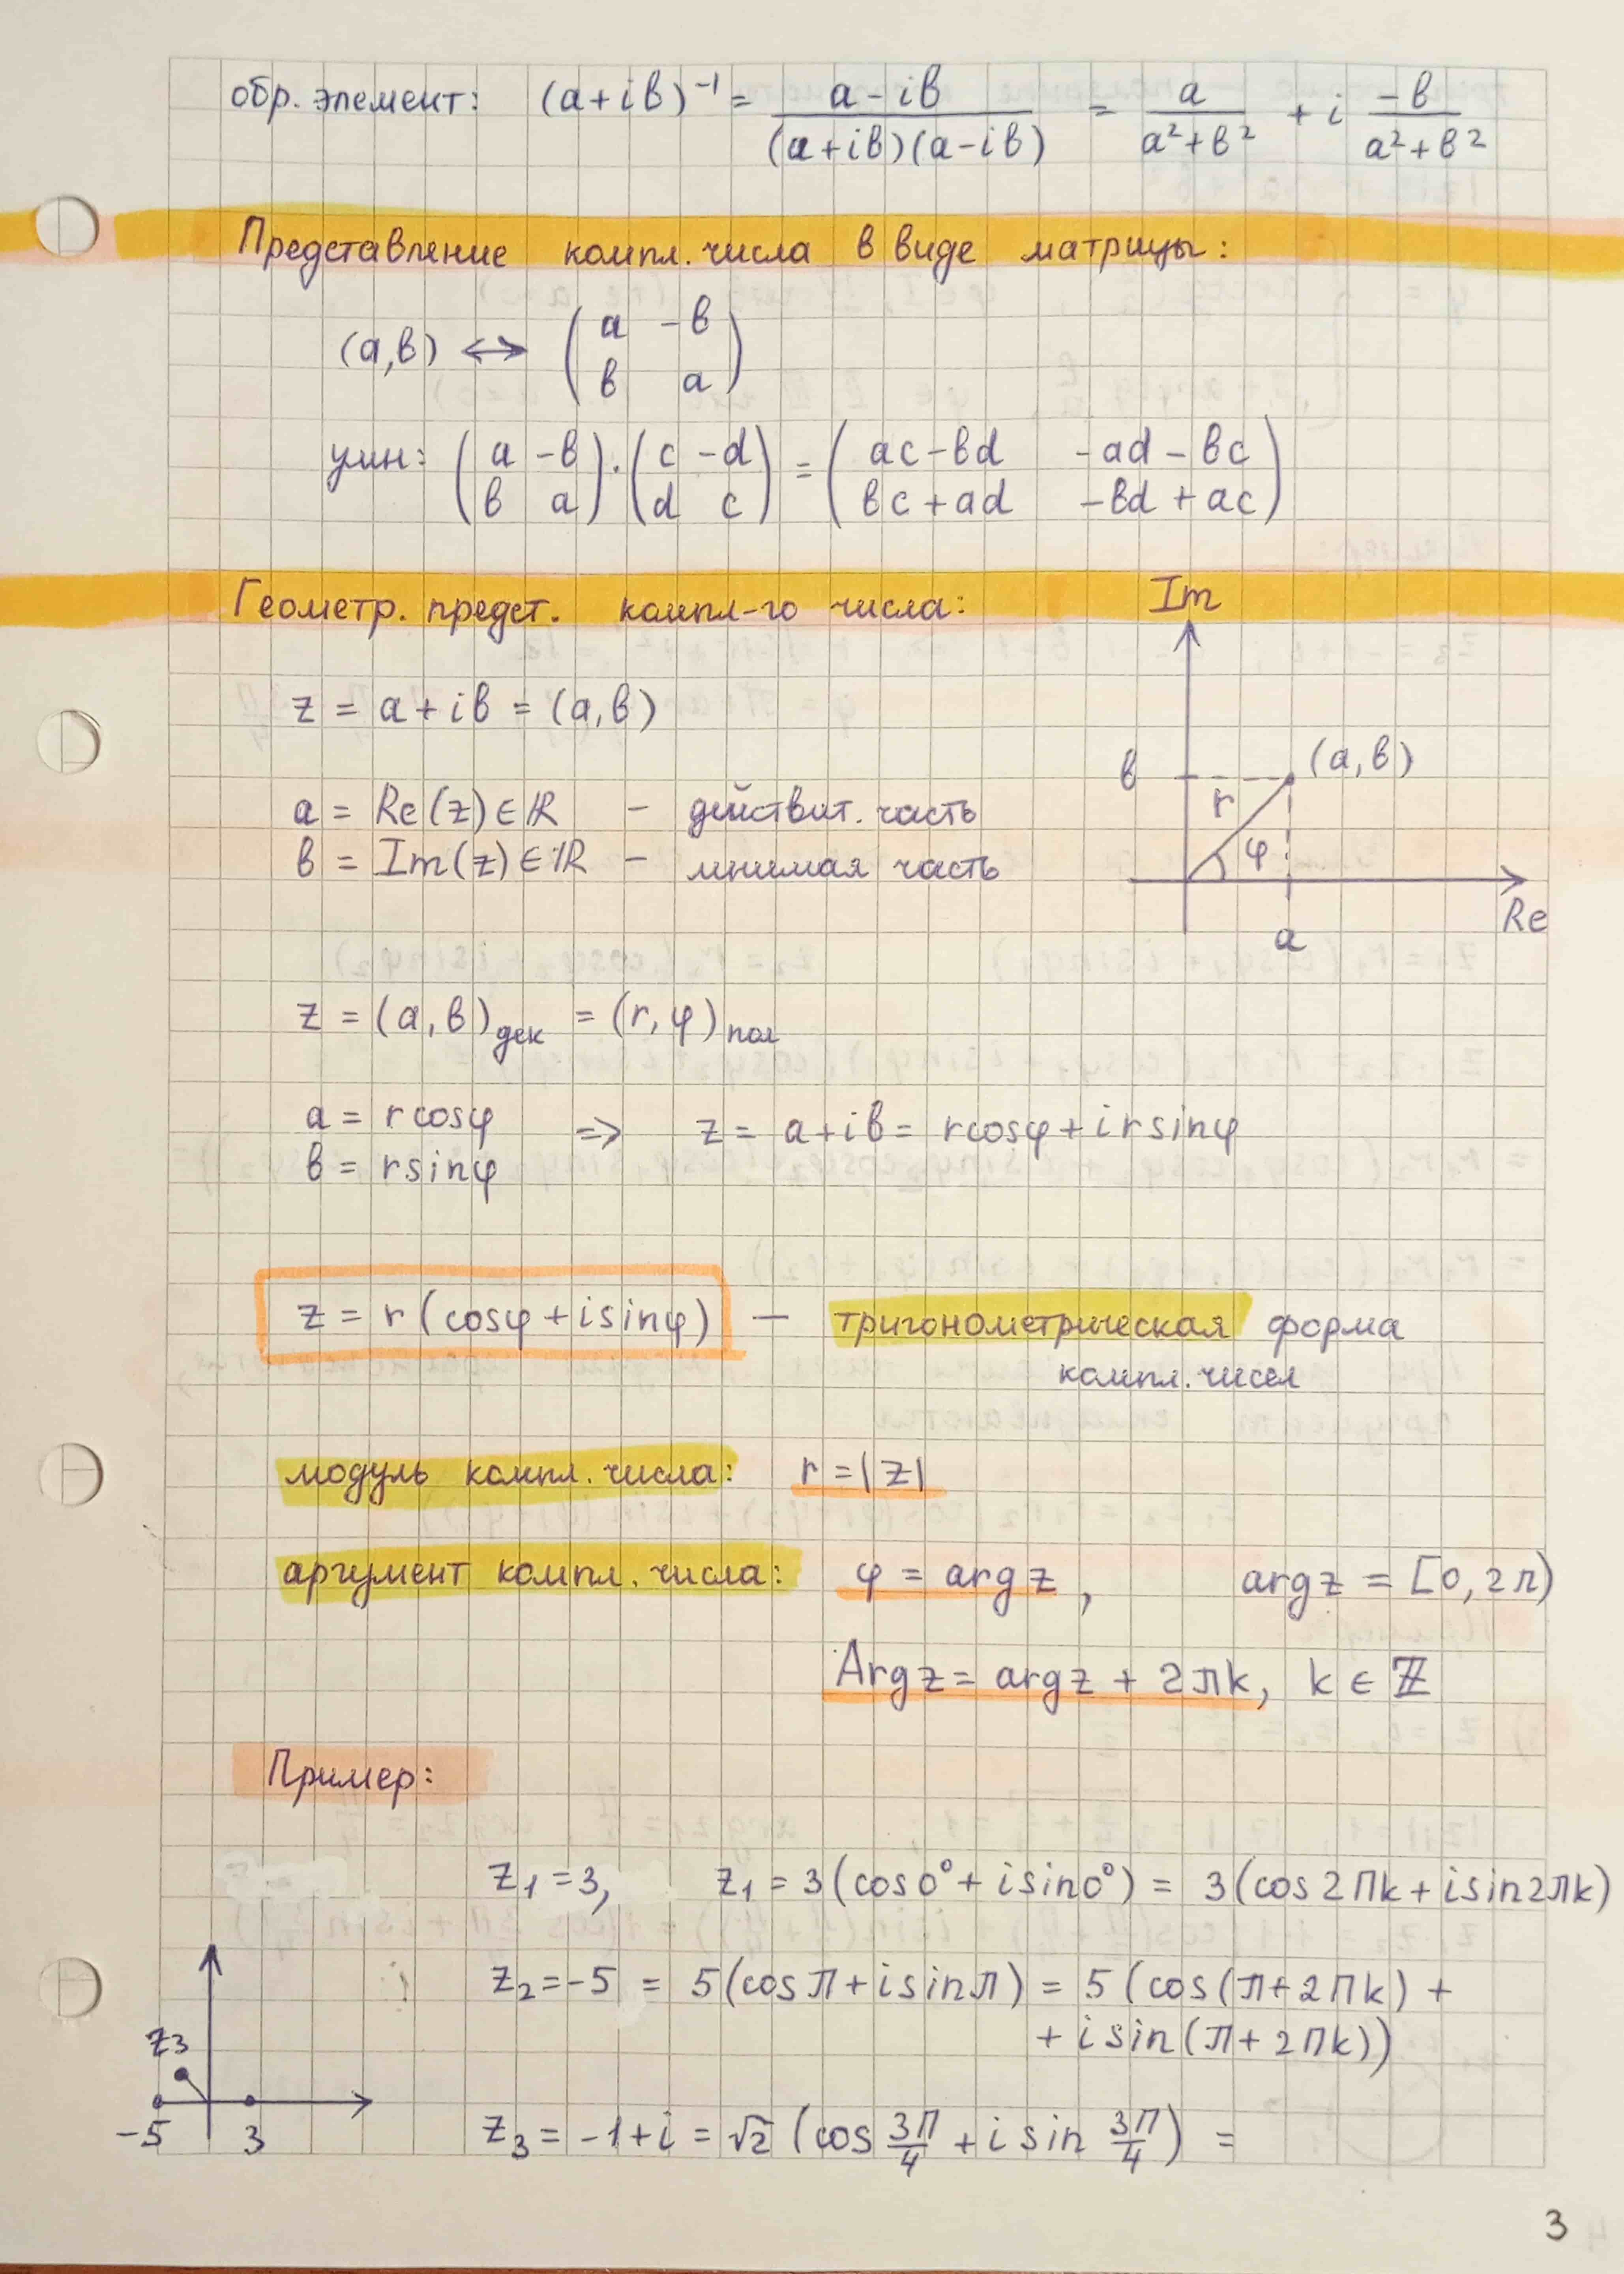 обр. элемент: (a+iв)⁻¹ = (a-iв)/((a+iв)(a-iв)) = a/(a²+в²) + i (-в)/(a²+в²)
Представление компл. числа в виде матрицы:
(a,в) ↔ (a -в; в a)
умн: (a -в; в a)·(c -d; d c) = (ac-вd -ad-вc; вc+ad -вd+ac)
Геометр. предст. компл-го числа:
Im
z = a+iв = (a,в)
в
(a,в)
r
φ
a
Re
a = Re(z)∈ℝ – действит. часть
в = Im(z)∈ℝ – мнимая часть
z = (a,в)дек = (r,φ)пол
a = rcosφ
в = rsinφ
=> z = a+iв = rcosφ+irsinφ
z = r(cosφ+isinφ) — тригонометрическая форма
компл. чисел
модуль компл. числа: r=|z|
аргумент компл. числа: φ = argz, argz = [0,2π)
Argz = argz + 2πk, k ∈ ℤ
Пример:
z₁=3, z₁ = 3(cos0°+isin0°) = 3(cos2πk+isin2πk)
z₂=-5 = 5(cosπ+isinπ) = 5(cos(π+2πk)+
+isin(π+2πk))
z3
-5
3
z₃ = -1+i = √2 (cos 3π/4 + i sin 3π/4) =
3